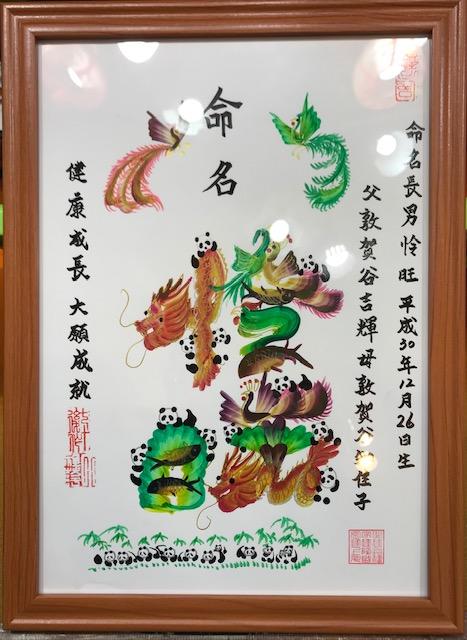 命名
命名長男怜旺 平成30年12月26日生
父敦賀谷吉輝母敦賀谷佳子
怜旺
健康成長 大願成就